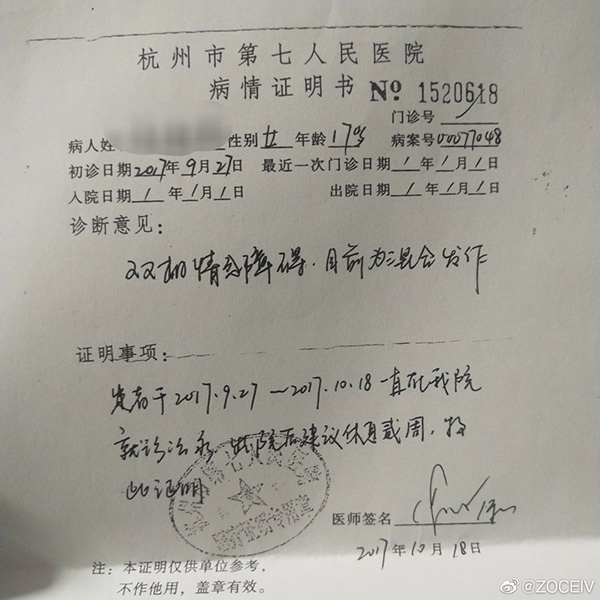 杭州市第七人民医院
病情证明书 № 1520618
门诊号 /
病人姓 性别 女 年龄 17岁 病案号 00077048
初诊日期 2017年9月27日 最近一次门诊日期 / 年 / 月 / 日
入院日期 / 年 / 月 / 日 出院日期 / 年 / 月 / 日
诊断意见：
双相情感障碍．目前为混合发作
证明事项：
患者于2017.9.27—2017.10.18一直在我院
就诊治疗 院后建议休息贰周，特
此证明
医师签名
2017年10月18日
注：本证明仅供单位参考，
不作他用，盖章有效。
@ZOCEIV